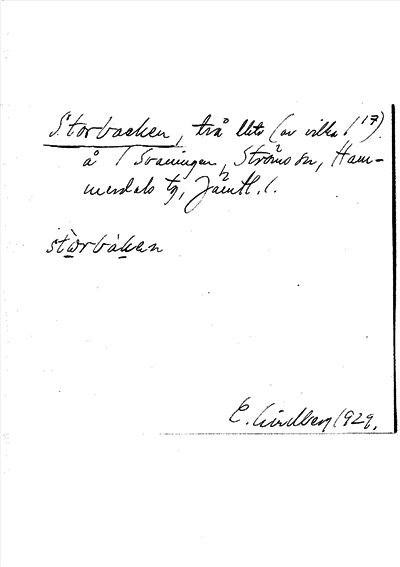 Storbacken, två llts (av vilka 1 17).
å / Svaningen, Ströms sn, Ham-
merdals tg, Jämtl. l.
stòrbàken
E. Lindberg 1929.